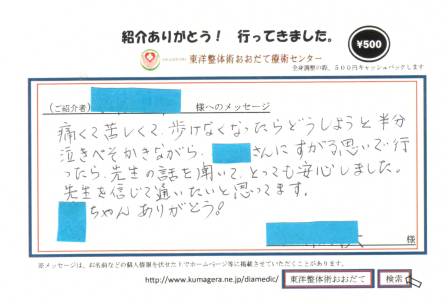 紹介ありがとう！ 行ってきました。
¥500
東洋整体術おおだて療術センター
全身調整の際、５００円キャッシュバックします
(ご紹介者) 様へのメッセージ
痛くて苦しくて、歩けなくなったらどうしようと半分
泣きべそかきながら、 さんにすがる思いで行
ったら、先生の話を聞いて、とっても安心しました。
先生を信じて通いたいと思ってます。
ちゃん ありがとう!
様
※メッセージは、お名前などの個人情報を伏せた上でホームページ等に掲載させていただくことがあります。
http://www.kumagera.ne.jp/diamedic/ 東洋整体術おおだて 検索